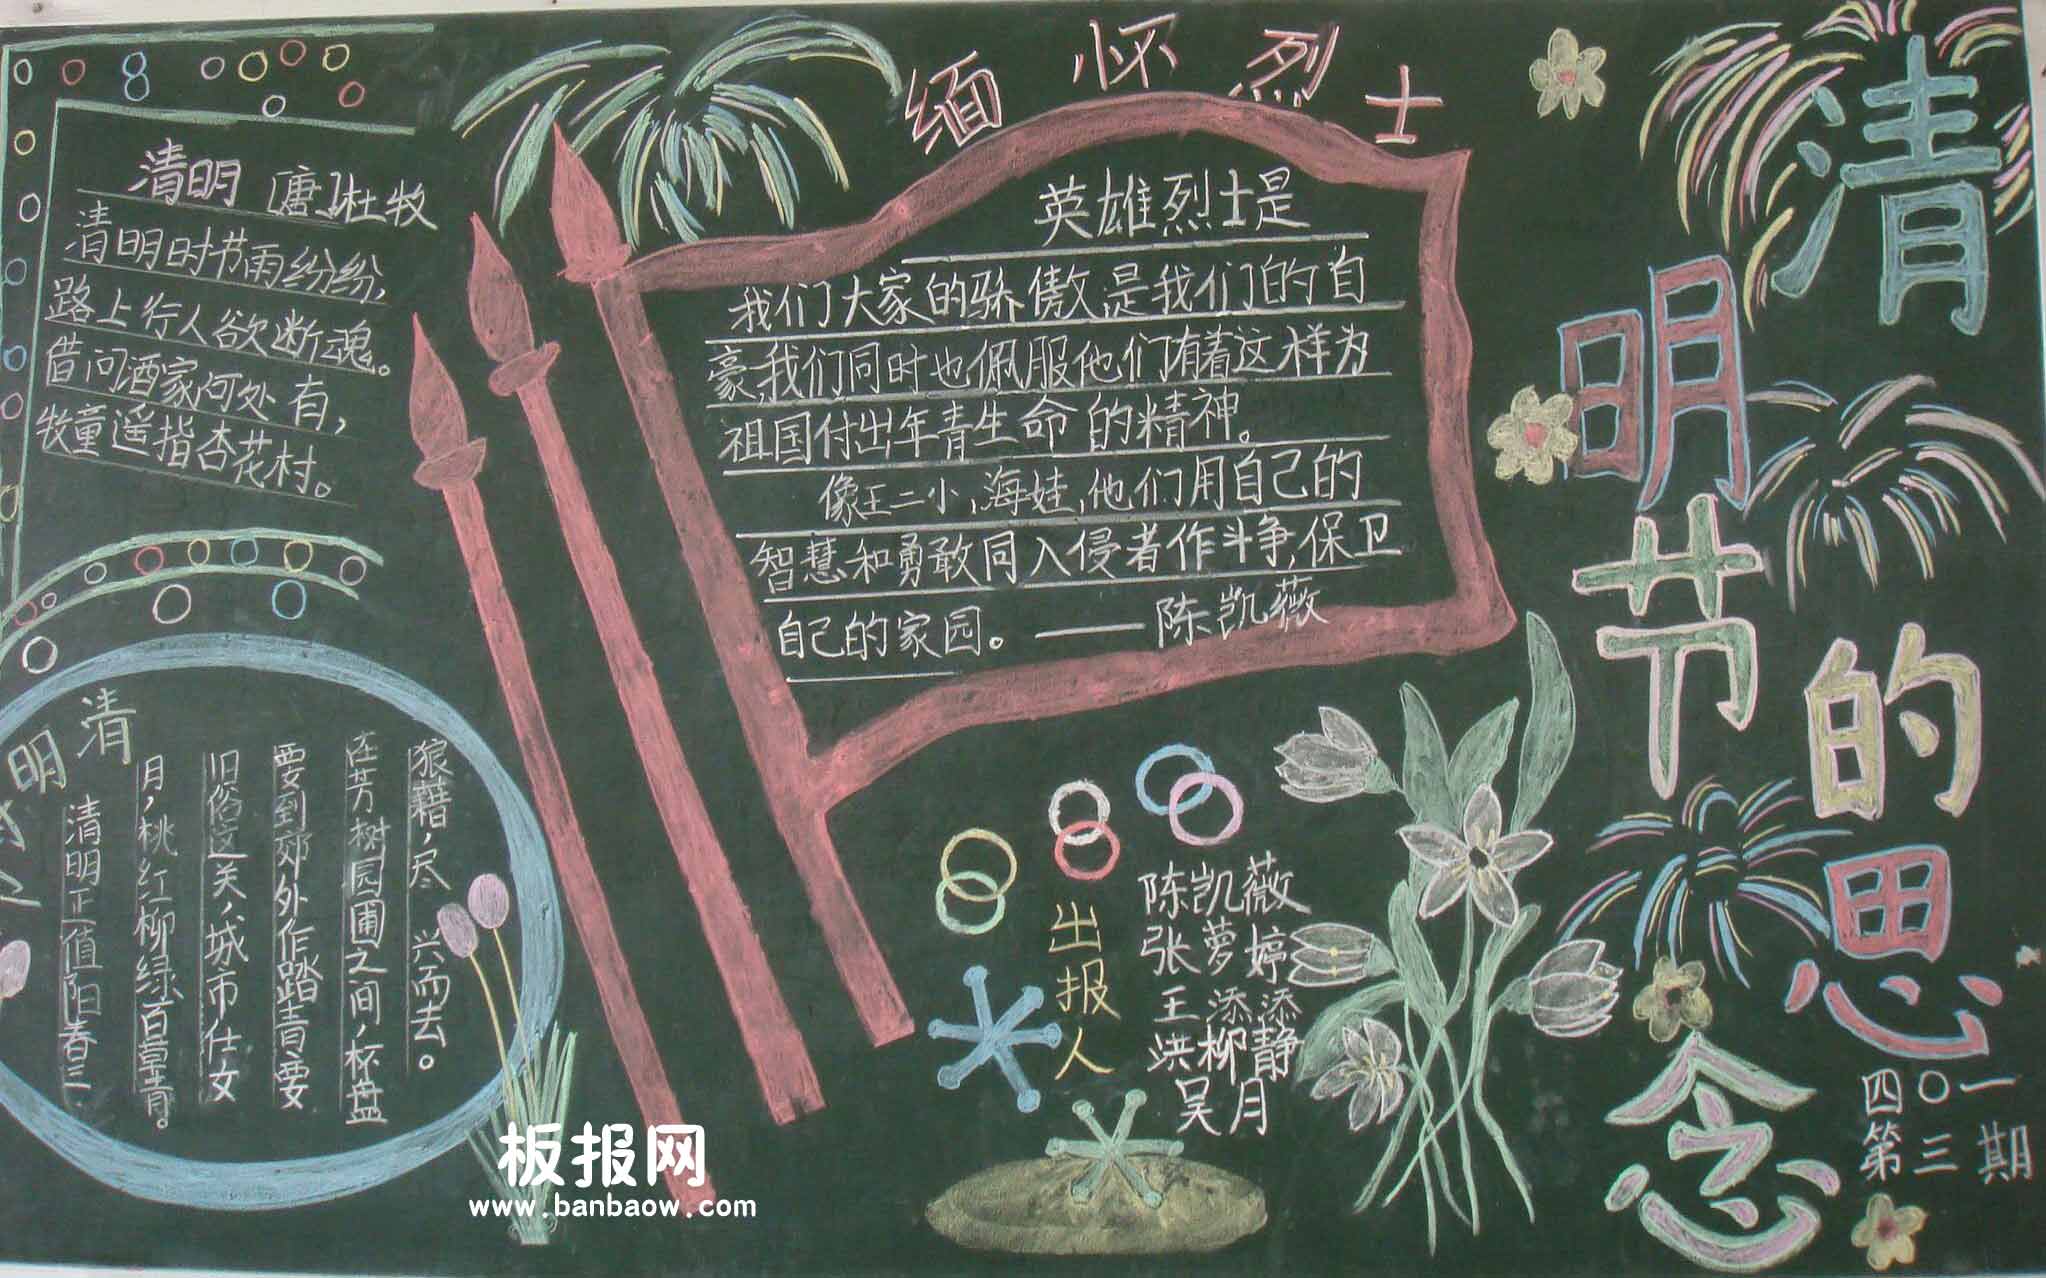 清明节的思念
四〇一
第三期
缅怀烈士
英雄烈士是
我们大家的骄傲,是我们的自
豪,我们同时也佩服他们有着这样为
祖国付出年青生命的精神。
像王二小,海娃,他们用自己的
智慧和勇敢同入侵者作斗争,保卫
自己的家园。——陈凯薇
清明 [唐]杜牧
清明时节雨纷纷,
路上行人欲断魂。
借问酒家何处有,
牧童遥指杏花村。
清明
清明正值阳春三
月,桃红柳绿百草青。
旧俗这关,城市仕女
要到郊外作踏青要
在芳树园圃之间,杯盘
狼藉,尽兴而去。
出报人
陈凯薇
张萝婷
王添添
洪柳静
吴月
板报网
www.banbaow.com